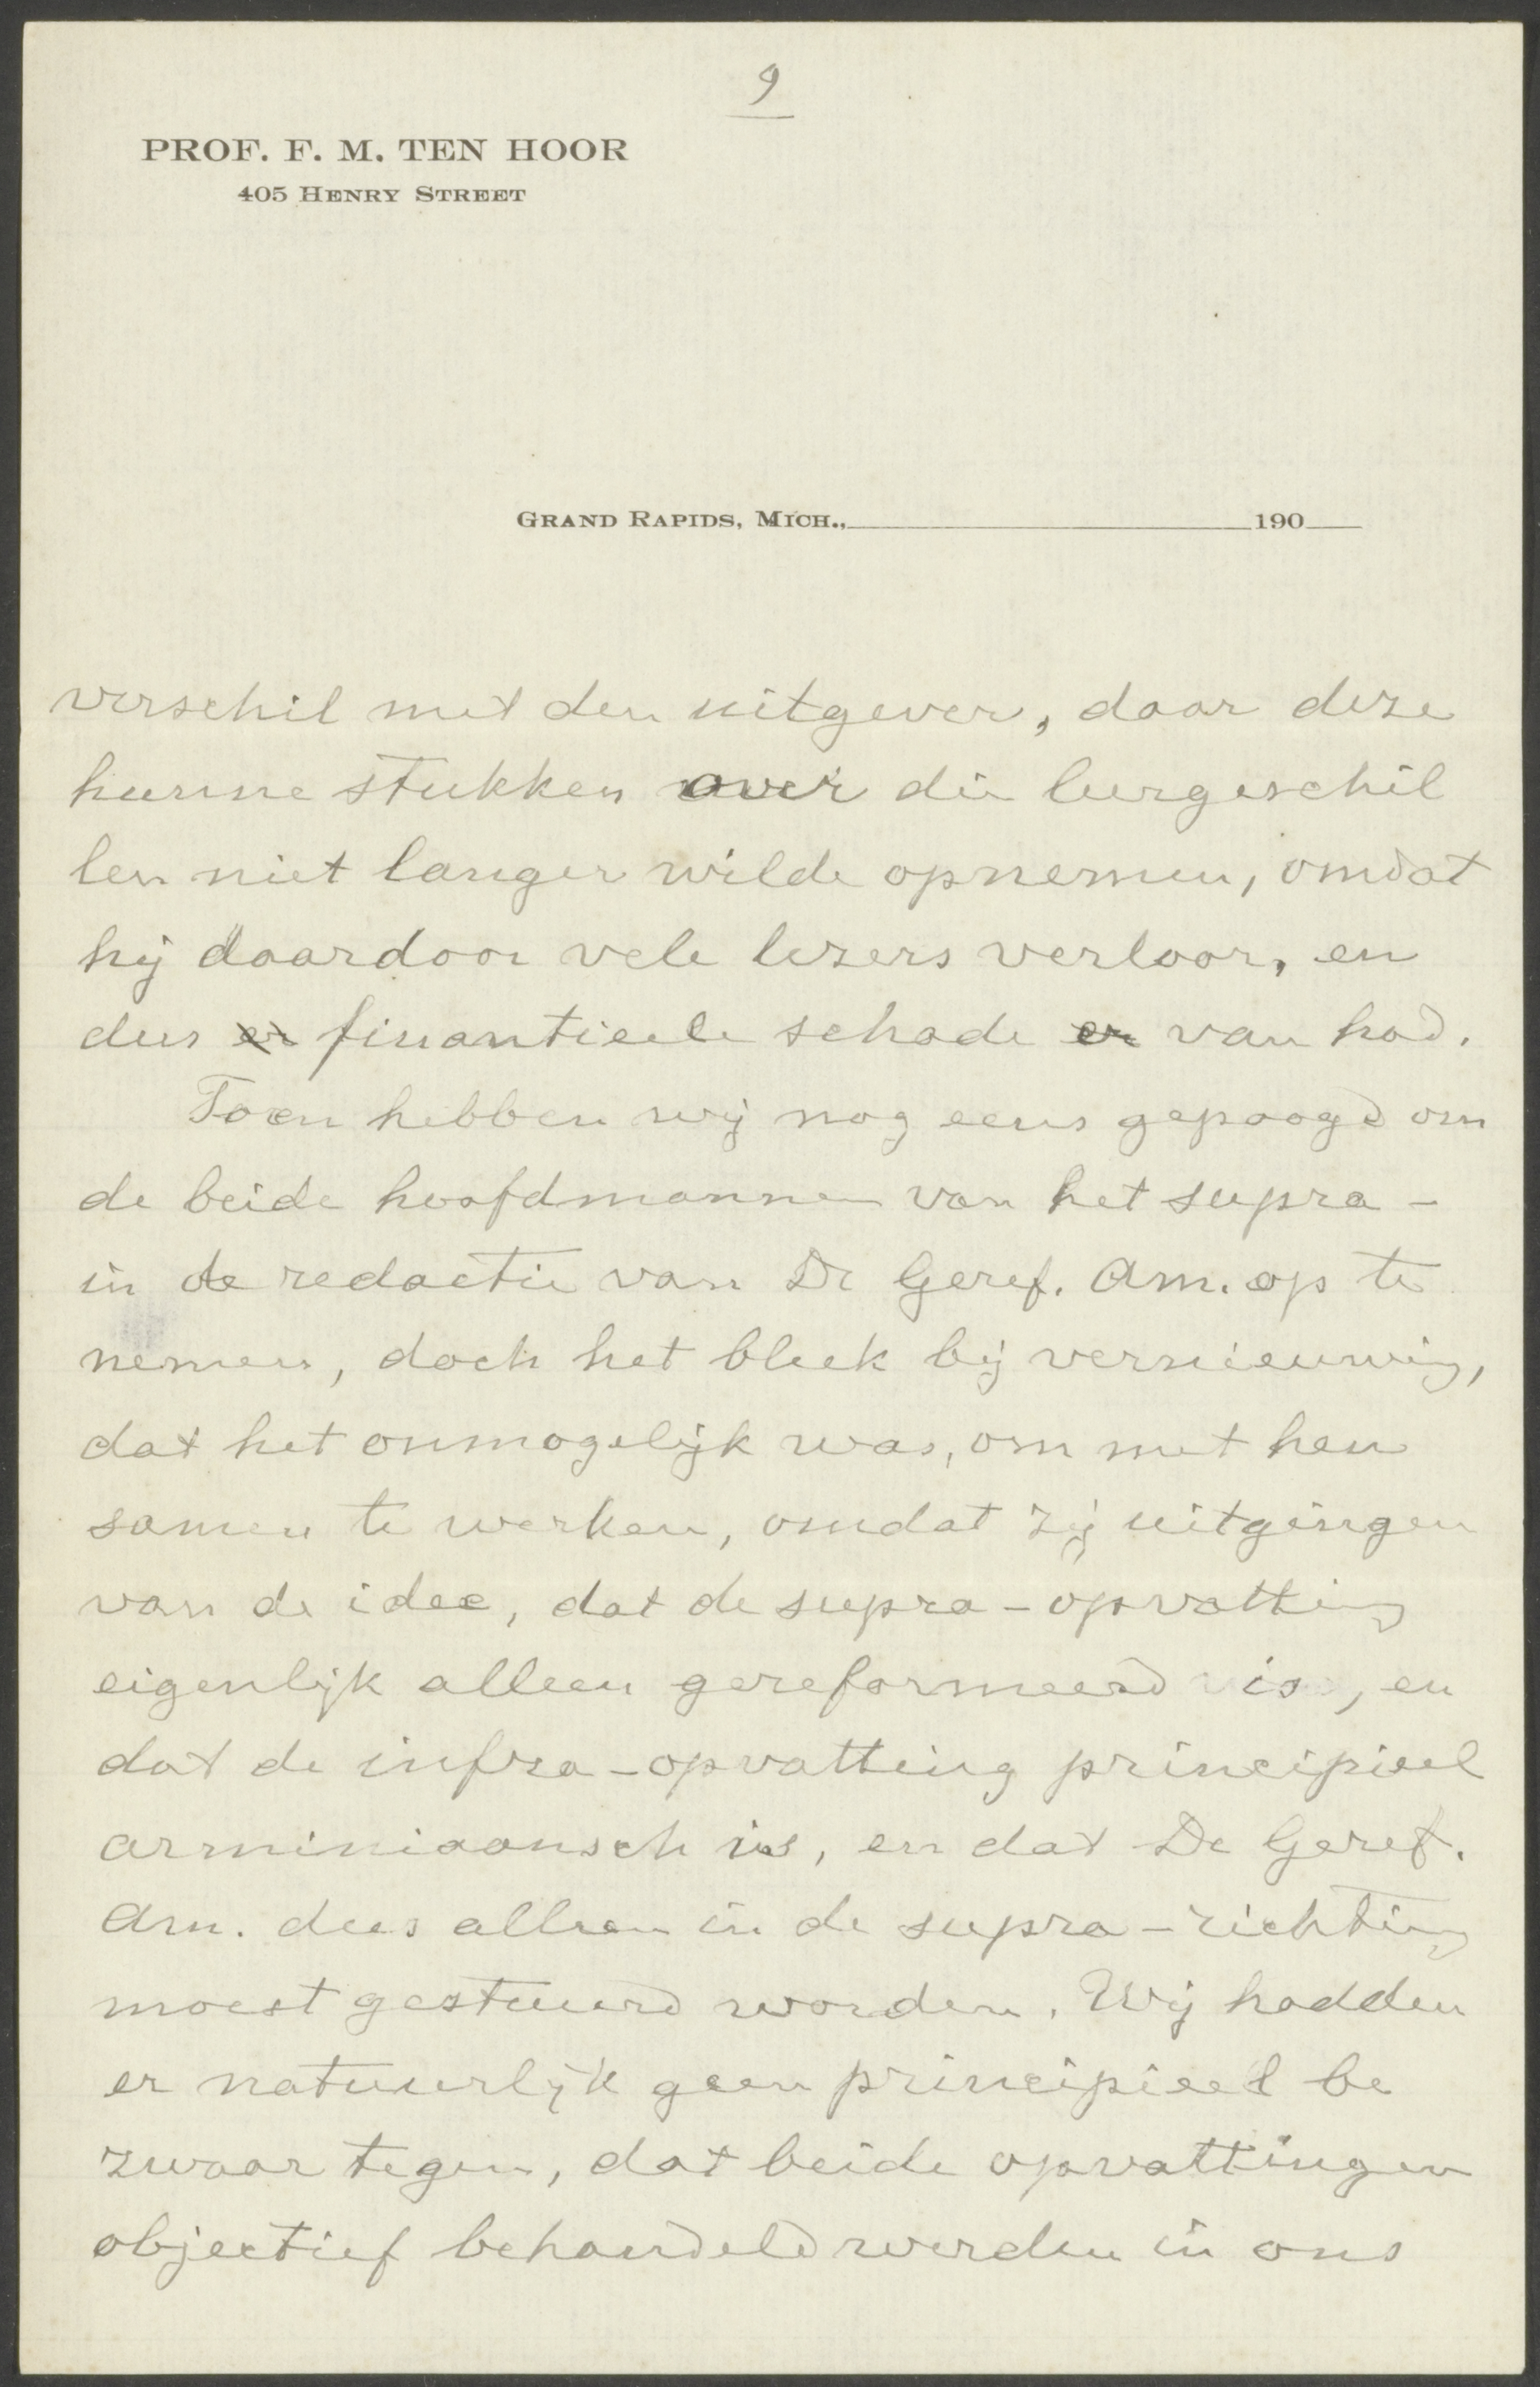 9
PROF. F. M. TEN HOOR
405 HENRY STREET
GRAND RAPIDS, MICH., 190
verschil met den uitgever, daar deze
hunne stukken over die leergeschil
len niet langer wilde opnemen, omdat
hij daardoor vele lezers verloor, en
dus er finantieele schade er van had.
Toen hebben wij nog eens gepoogd om
de beide hoofdmannen van het supra-
in de redactie van De Geref. Am. op te
nemen, doch het bleek bij vernieuwing,
dat het onmogelijk was, om met hen
samen te werken, omdat zij uitgingen
van de idee, dat de supra-opvatting
eigenlijk alleen gereformeerd is, en
dat de infra-opvatting principieel
arminiaansch is, en dat De Geref.
Am. dus alleen in de supra-richting
moest gestuurd worden. Wij hadden
er natuurlijk geen principieel be
zwaar tegen, dat beide opvattingen
objectief behandeld werden in ons